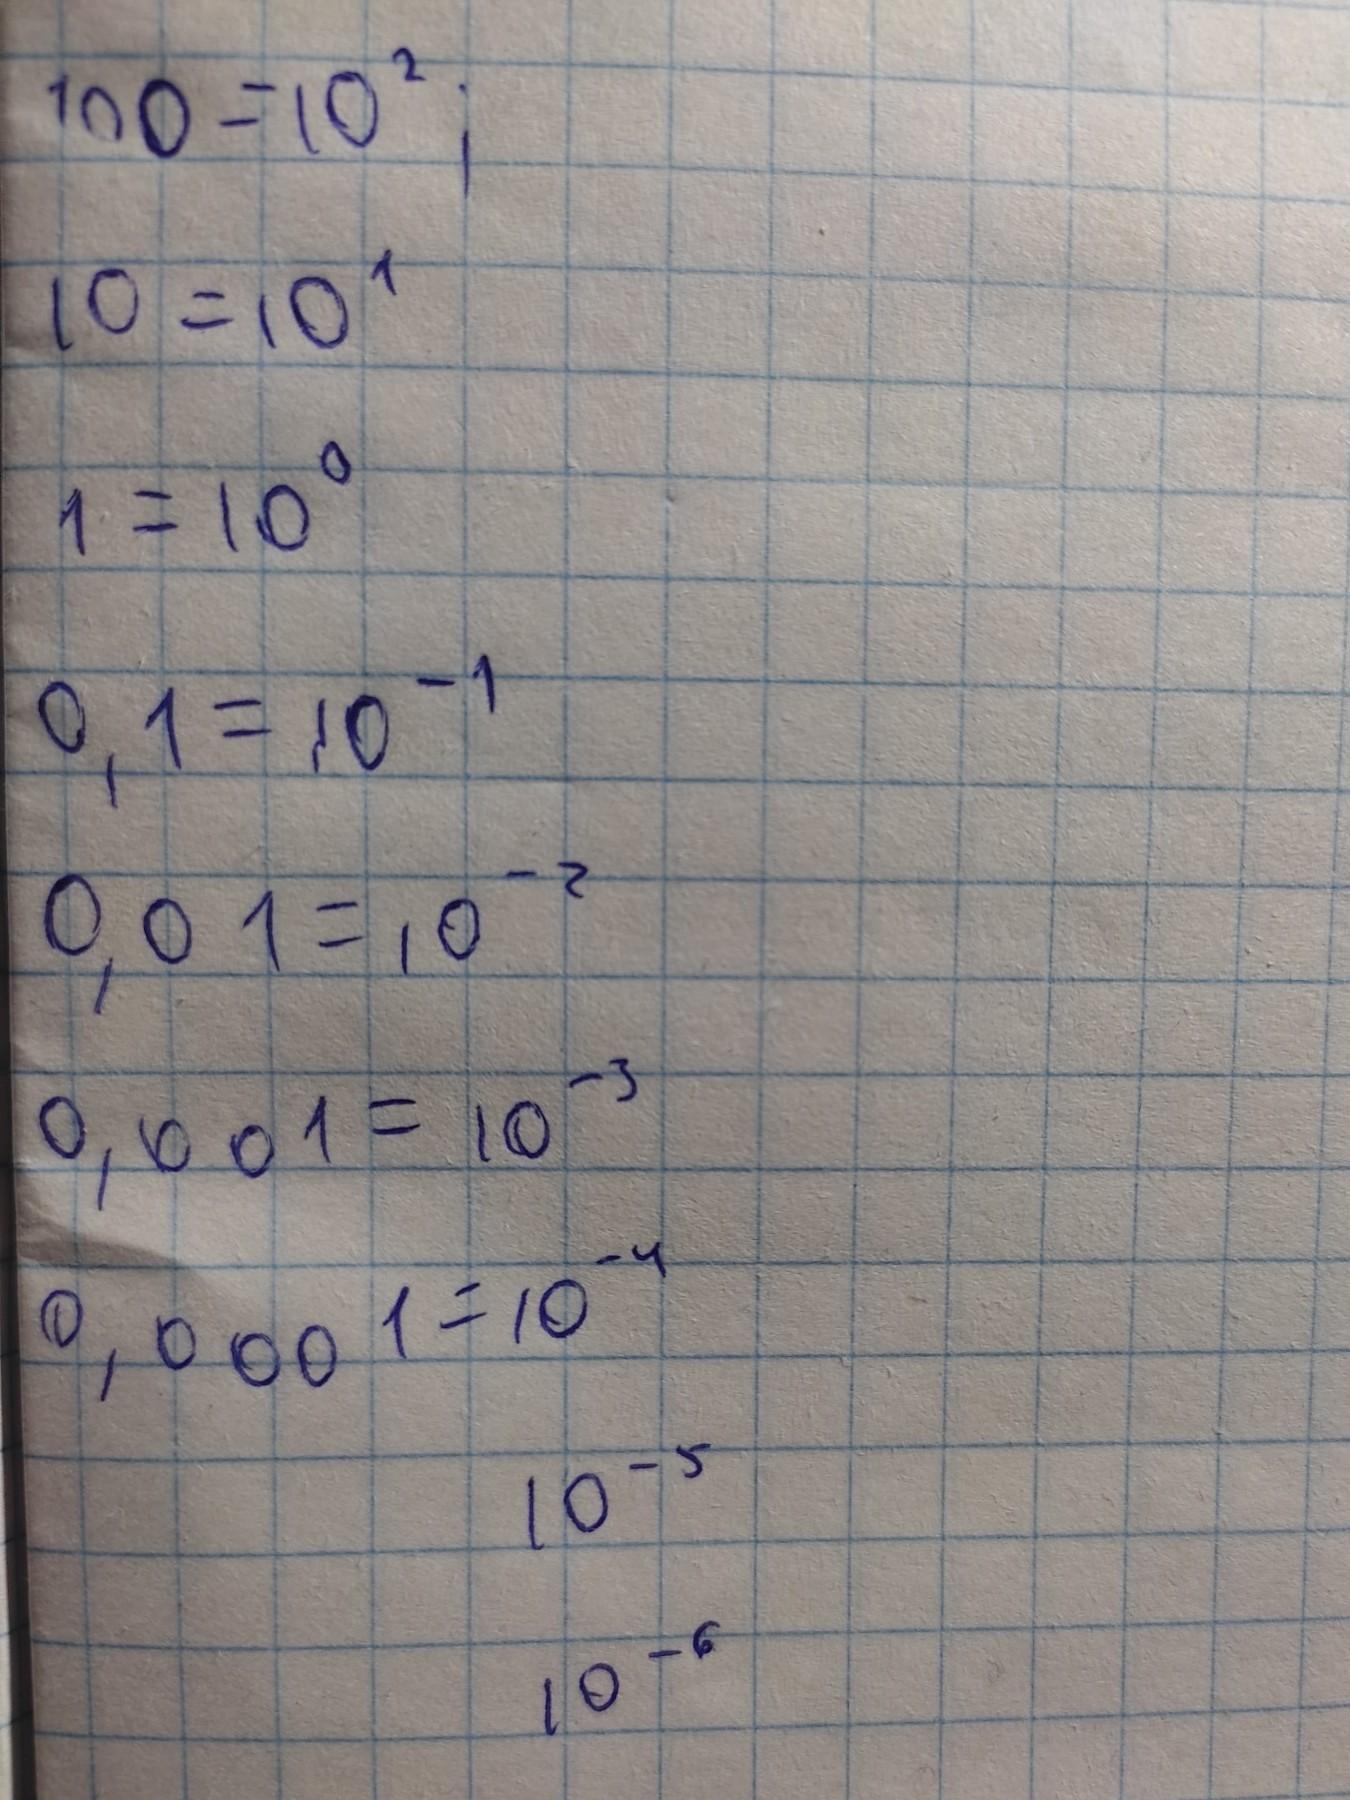 100 = 10²;
10 = 10¹
1 = 10⁰
0,1 = 10⁻¹
0,01 = 10⁻²
0,001 = 10⁻³
0,0001 = 10⁻⁴
10⁻⁵
10⁻⁶